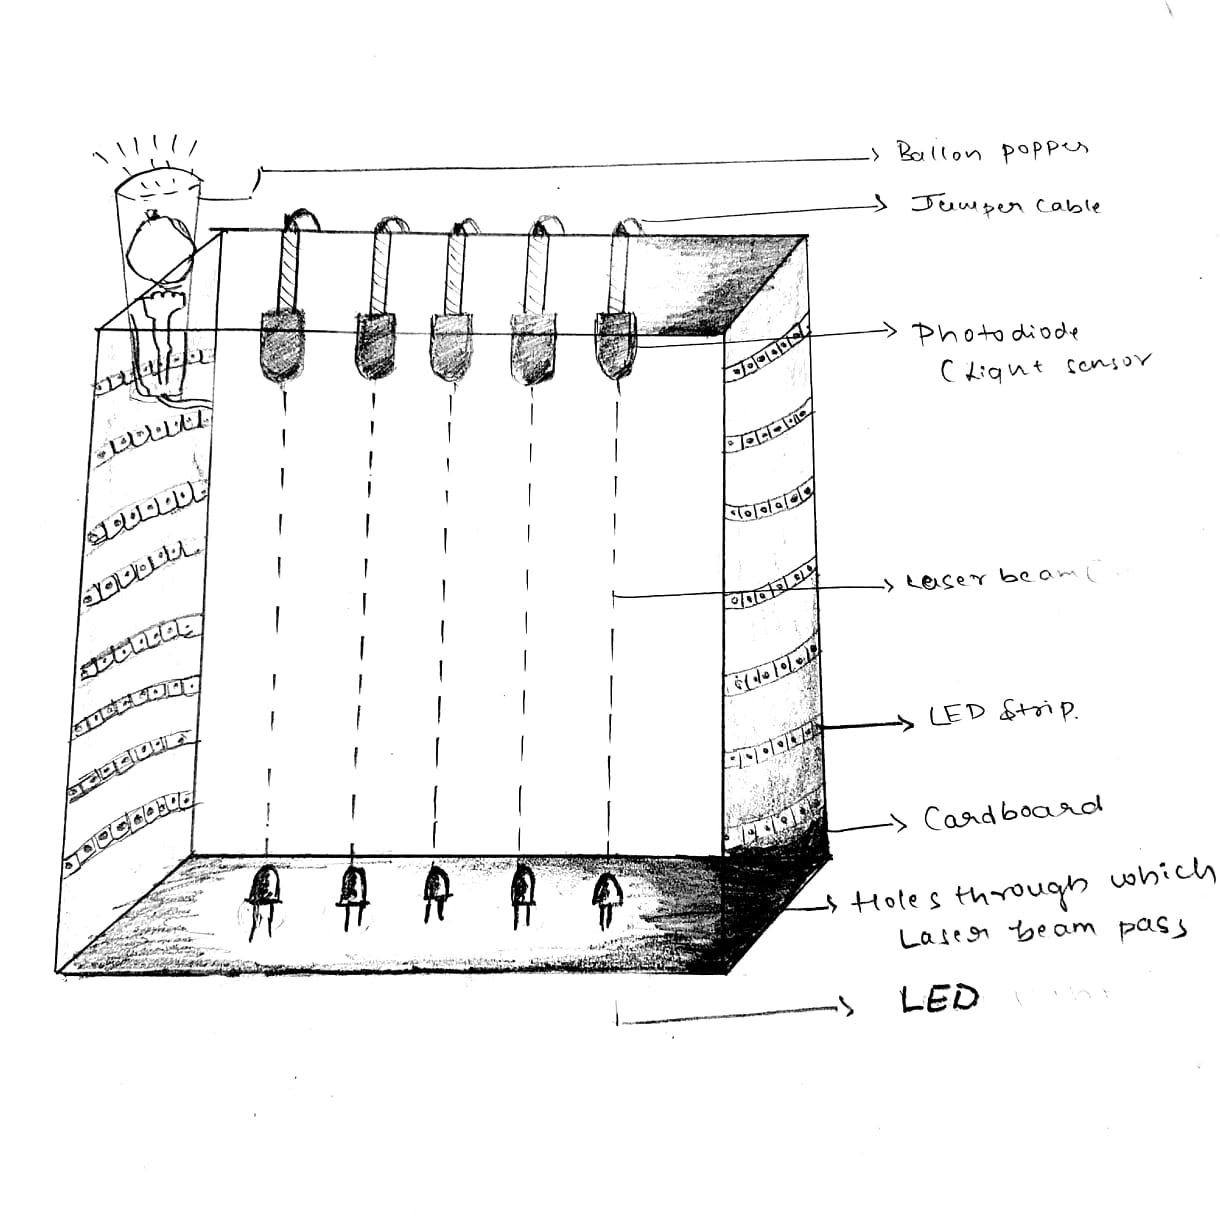 Ballon popper
Jumper cable
Photodiode
(Light sensor
Laser beam
LED Strip.
Cardboard
Holes through which
Laser beam pass
LED